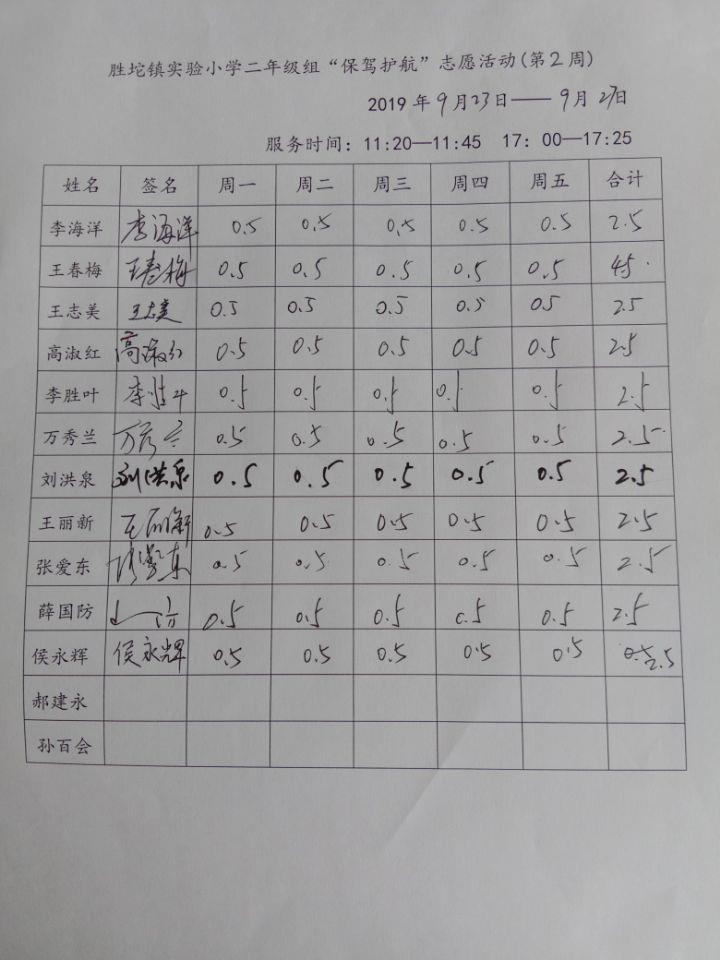 胜坨镇实验小学二年级组“保驾护航”志愿活动(第2周)
2019年9月23日——9月27日
服务时间：11:20—11:45 17：00—17:25
姓名 签名 周一 周二 周三 周四 周五 合计
李海洋 李海洋 0.5 0.5 0.5 0.5 0.5 2.5
王春梅 王春梅 0.5 0.5 0.5 0.5 0.5 45
王志美 王志美 0.5 0.5 0.5 0.5 0.5 2.5
高淑红 高淑红 0.5 0.5 0.5 0.5 0.5 2.5
李胜叶 李胜叶 0.5 0.5 0.5 0.5 0.5 2.5
万秀兰 万秀兰 0.5 0.5 0.5 0.5 0.5 2.5
刘洪泉 刘洪泉 0.5 0.5 0.5 0.5 0.5 2.5
王丽新 王丽新 0.5 0.5 0.5 0.5 0.5 2.5
张爱东 张爱东 0.5 0.5 0.5 0.5 0.5 2.5
薛国防 0.5 0.5 0.5 0.5 0.5 2.5
侯永辉 侯永辉 0.5 0.5 0.5 0.5 0.5 2.5
郝建永
孙百会